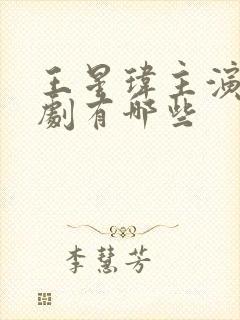 王星瑋主演
劇有哪些
李慧芳